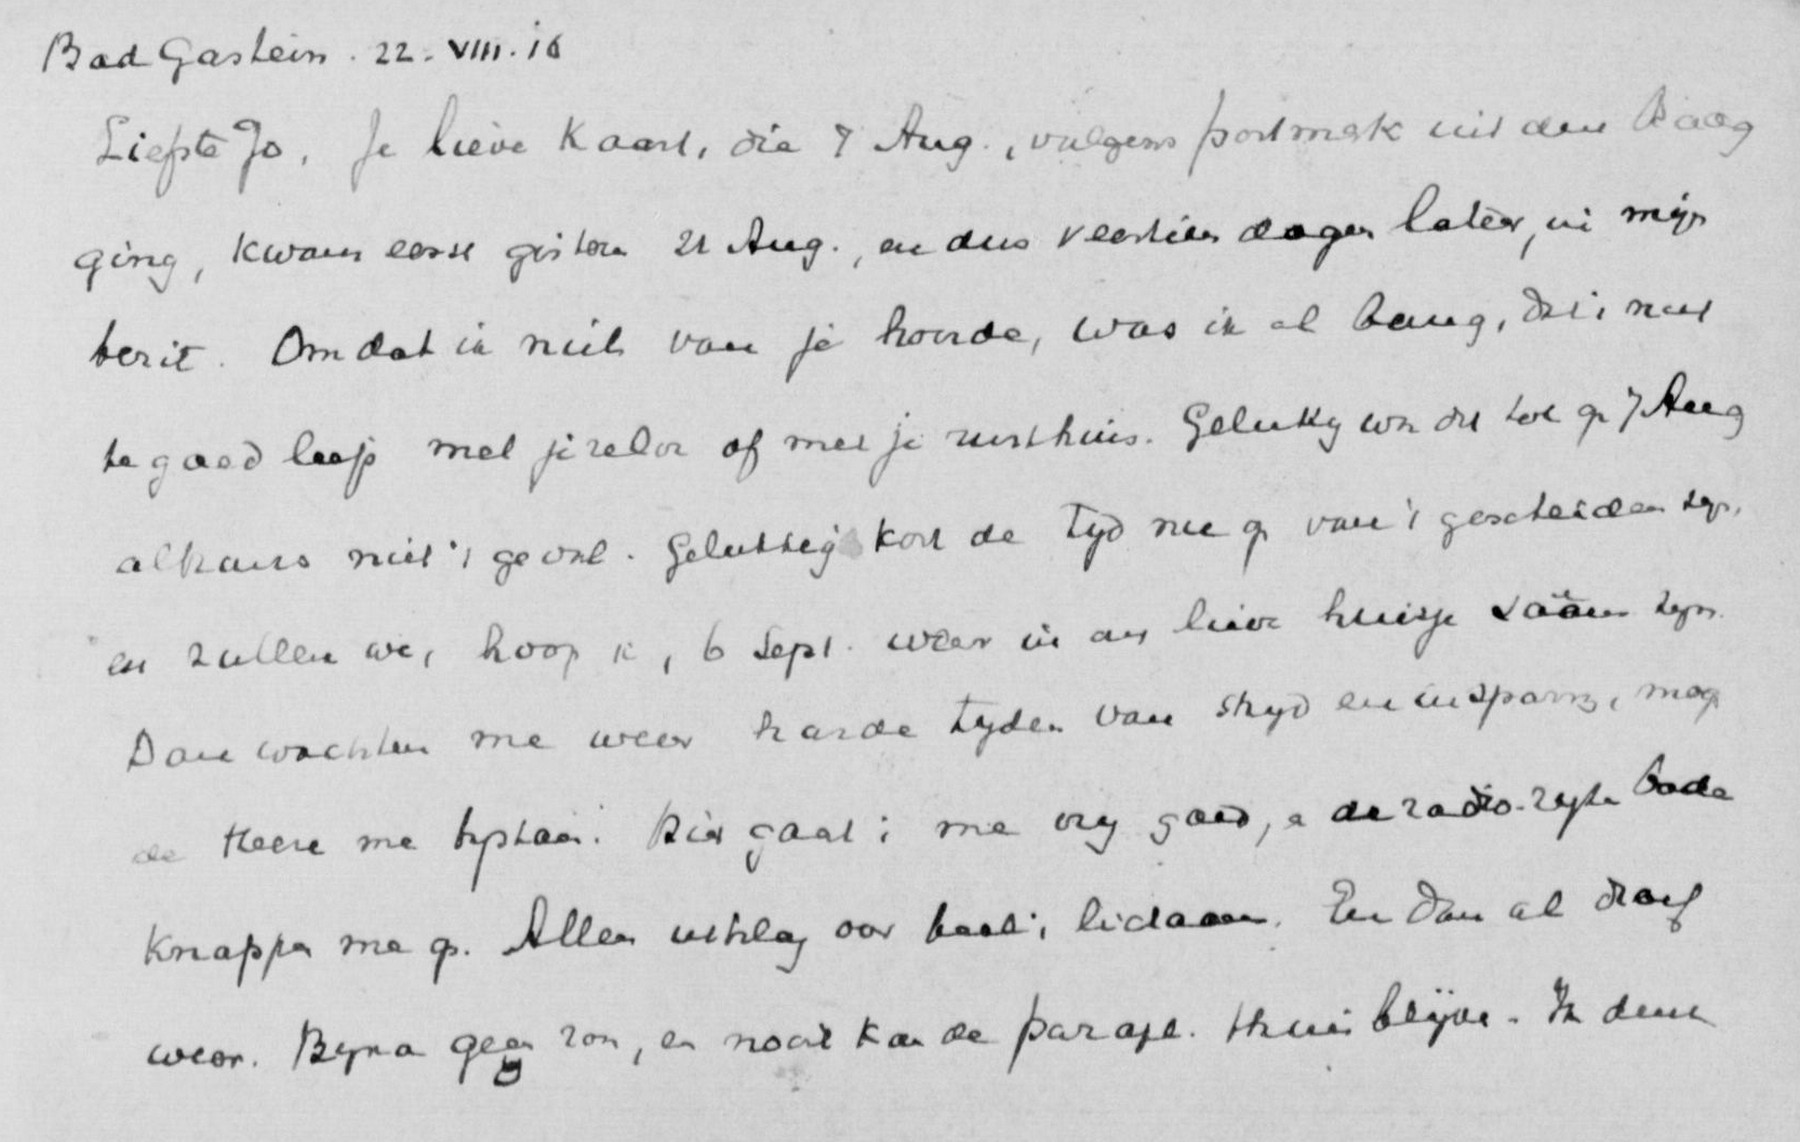 Bad Gastein. 22. VIII. 16
Liefste Jo, Je lieve Kaart, die 7 Aug., volgens postmerk uit den Haag
ging, kwam eerst gisteren 21 Aug., en dus veertien dagen later, in mijn
bezit. Omdat ik niets van je hoorde, was ik al bang, dat 't niet
te goed liep met je zelve of met je rusthuis. Gelukkig was dit tot op 7 Aug
althans niet 't geval. Gelukkig kort de tyd nu op van 't gescheiden zyn,
en zullen we, hoop ik, 6 Sept. weer in ons lieve huisje saâm zyn.
Dan wachten me weer harde tyden van stryd en inspann, moge
de Heere me bystaan. Hier gaat 't me vry goed, en de bade
knappen me op. Alleen uitslag over heel 't lichaam. En dan al
weer. Byna geen zon, en nooit kan de parapl. thuis blijve. Ik denk